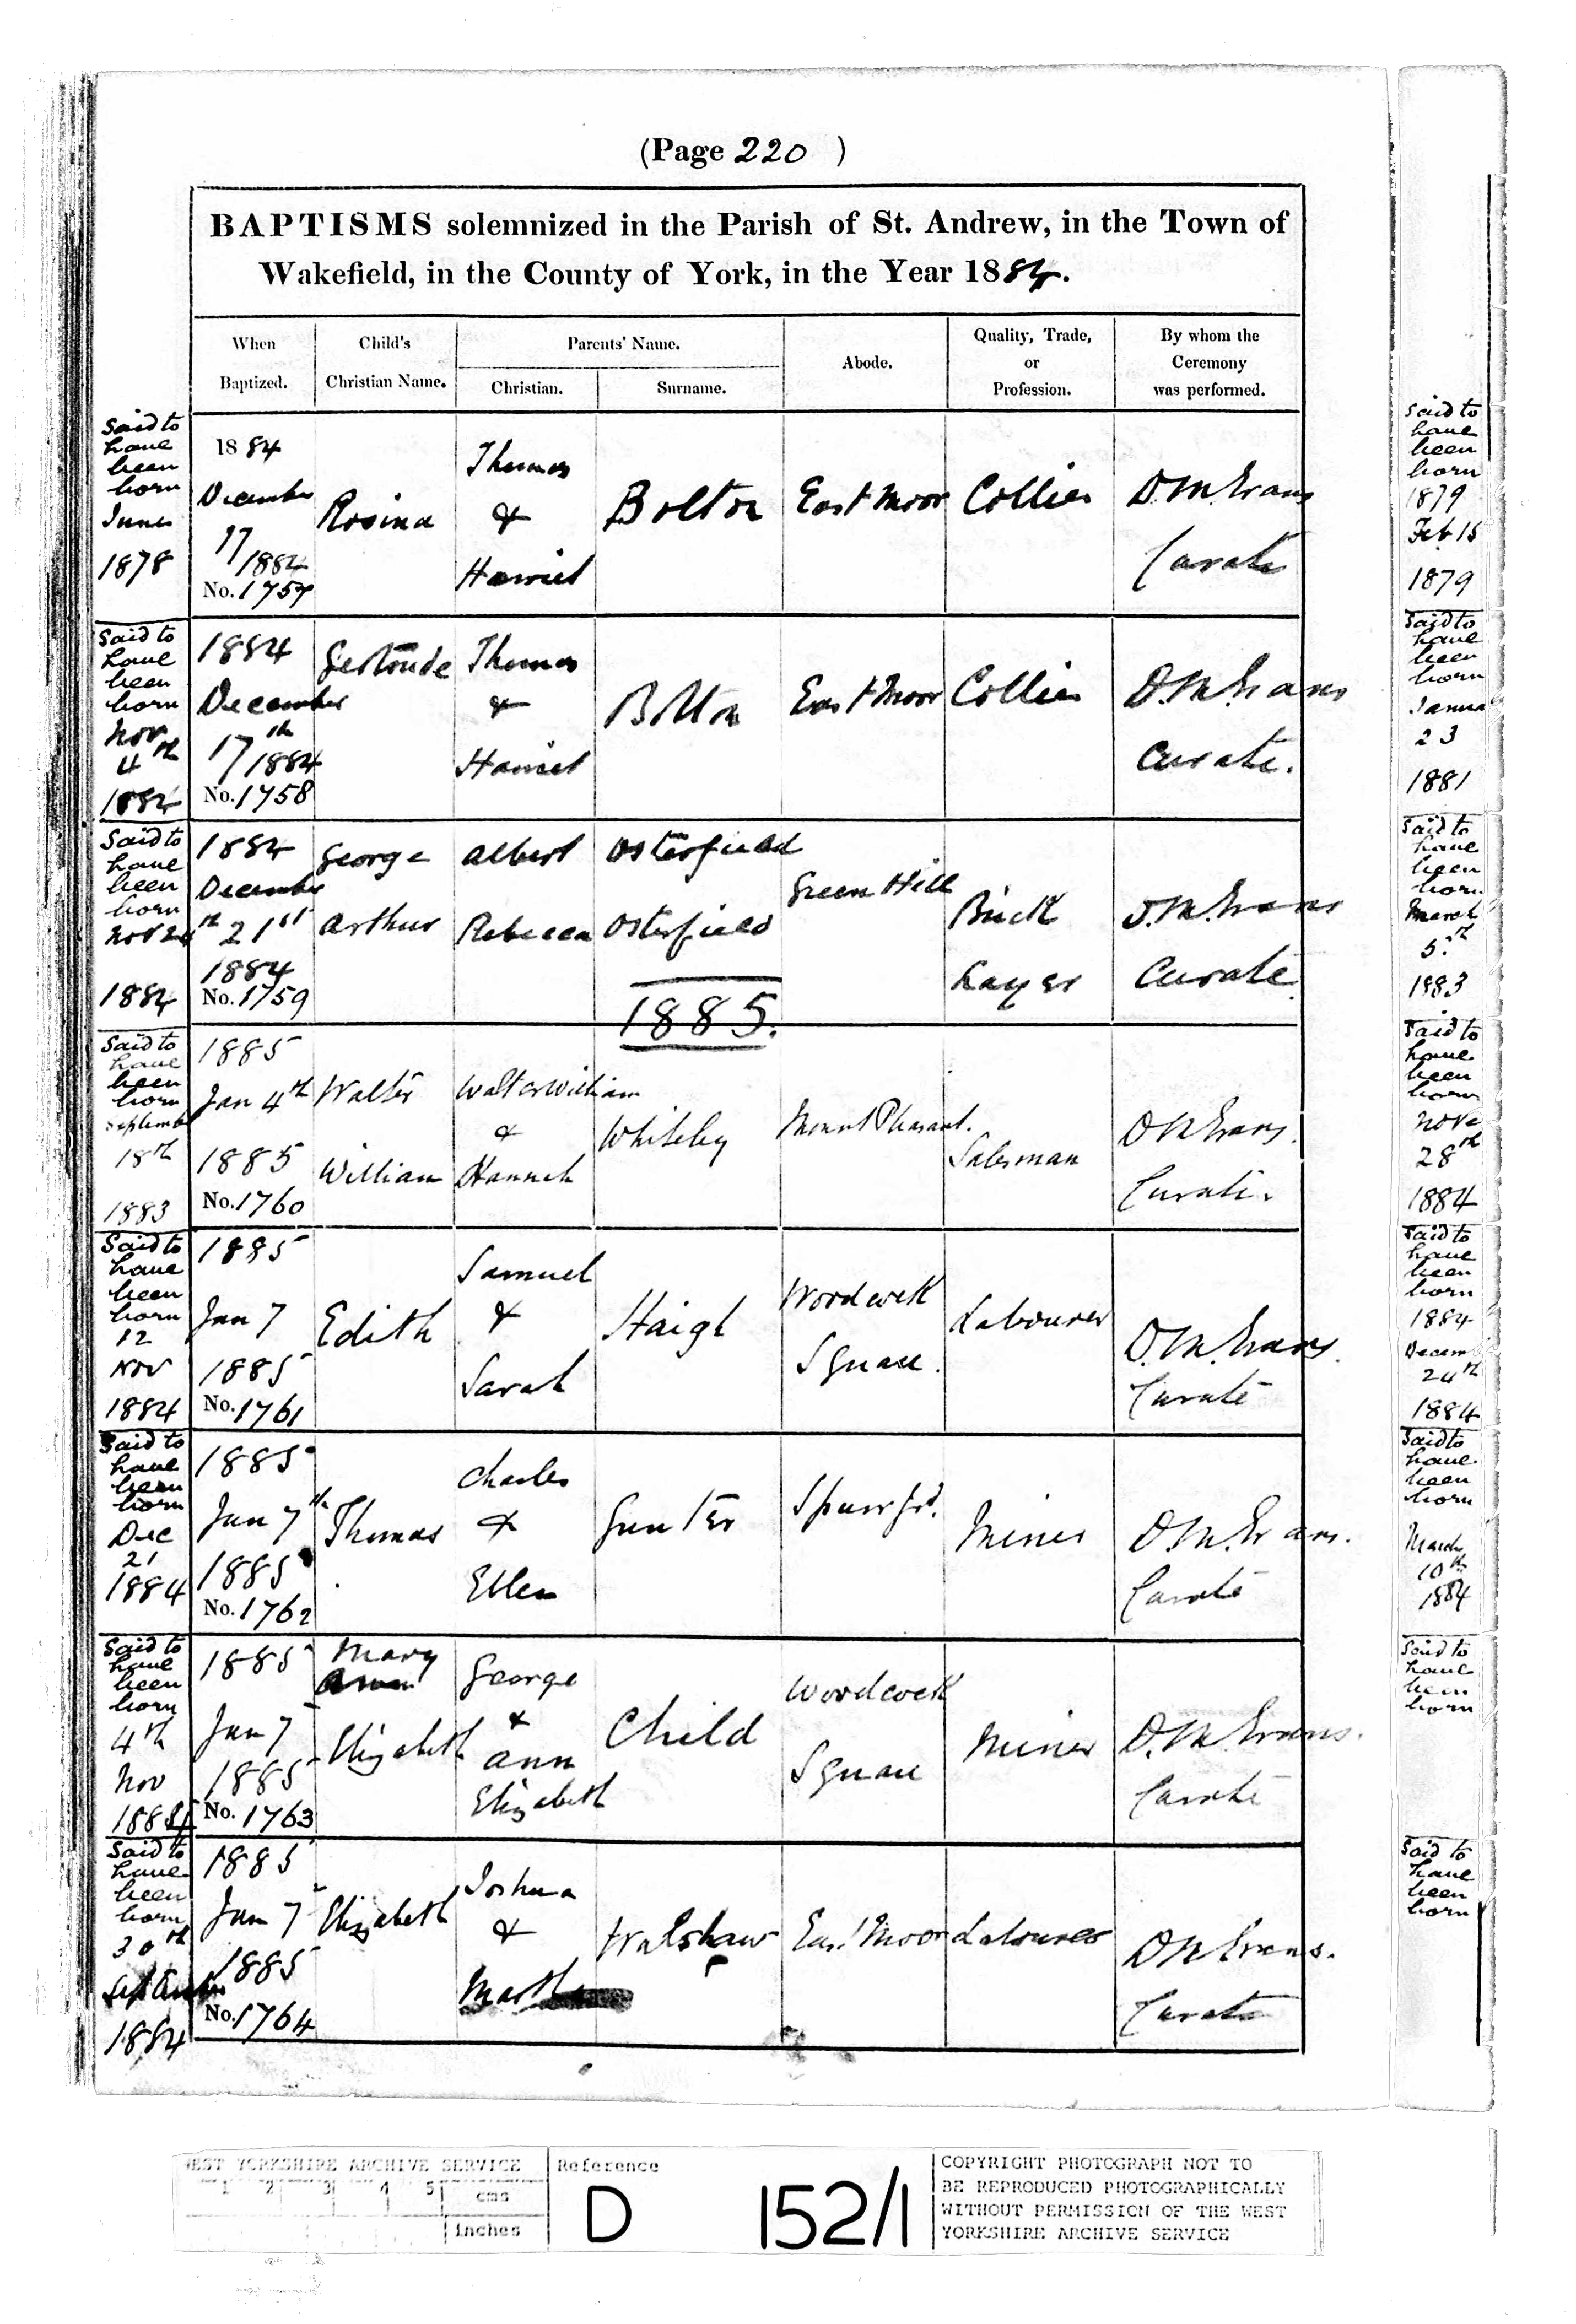 (Page 220 )
BAPTISMS solemnized in the Parish of St. Andrew, in the Town of
Wakefield, in the County of York, in the Year 1884.
When
Baptized.
Child's
Christian Name.
Parents' Name.
Christian.
Surname.
Abode.
Quality, Trade,
or
Profession.
By whom the
Ceremony
was performed.
Said to
have
been
born
June
1878
1884
December
17
1884
No. 1757
Rosina
Thomas
&
Harriet
Bolton
East Moor
Collier
D.M. Evans
Curate
Said to
have
been
born
Nov
4th
1882
1884
December
17th
1884
No. 1758
Gertrude
Thomas
&
Harriet
Bolton
East Moor
Collier
D.M. Evans
Curate.
Said to
have
been
born
Nov 24th
1884
1884
December
21st
1884
No. 1759
George
Arthur
Albert
Rebecca
Osterfield
Osterfield
Green Hill
Brick
Layer
D.M. Evans
Curate
1885.
Said to
have
been
born
September
18th
1883
1885
Jan 4th
1885
No. 1760
Walter
William
Walter William
&
Hannah
Whiteley
Mount Pleasant.
Salesman
D M Evans.
Curate.
Said to
have
been
born
12
Nov
1884
1885
Jan 7
1885
No. 1761
Edith
Samuel
&
Sarah
Haigh
Woodcock
Square.
Labourer
D.M. Evans.
Curate
Said to
have
been
born
Dec
21
1884
1885
Jan 7th
1885
No. 1762
Thomas
Charles
&
Ellen
Gunter
Spurr Yd.
Miner
D.M. Evans.
Curate
Said to
have
been
born
4th
Nov
1884
1885
Jan 7
1885
No. 1763
Mary
Elizabeth
George
&
Ann
Elizabeth
Child
Woodcock
Square
Miner
D.M. Evans.
Curate
Said to
have
been
born
30th
September
1884
1885
Jan 7
1885
No. 1764
Elizabeth
Joshua
&
Martha
Walshaw
East Moor
Labourer
D M Evans.
Curate
Said to
have
been
born
1879
Feb 15
1879
Said to
have
been
born
Janua
23
1881
Said to
have
been
born
March
5th
1883
Said to
have
been
born
Nove
28th
1884
Said to
have
been
born
1884
Decem
24th
1884
Said to
have
been
born
March
10th
1884
Said to
have
been
born
Said to
have
been
born
WEST YORKSHIRE ARCHIVE SERVICE
1 2 3 4 5
cms
inches
Reference
D 152/1
COPYRIGHT PHOTOGRAPH NOT TO
BE REPRODUCED PHOTOGRAPHICALLY
WITHOUT PERMISSION OF THE WEST
YORKSHIRE ARCHIVE SERVICE